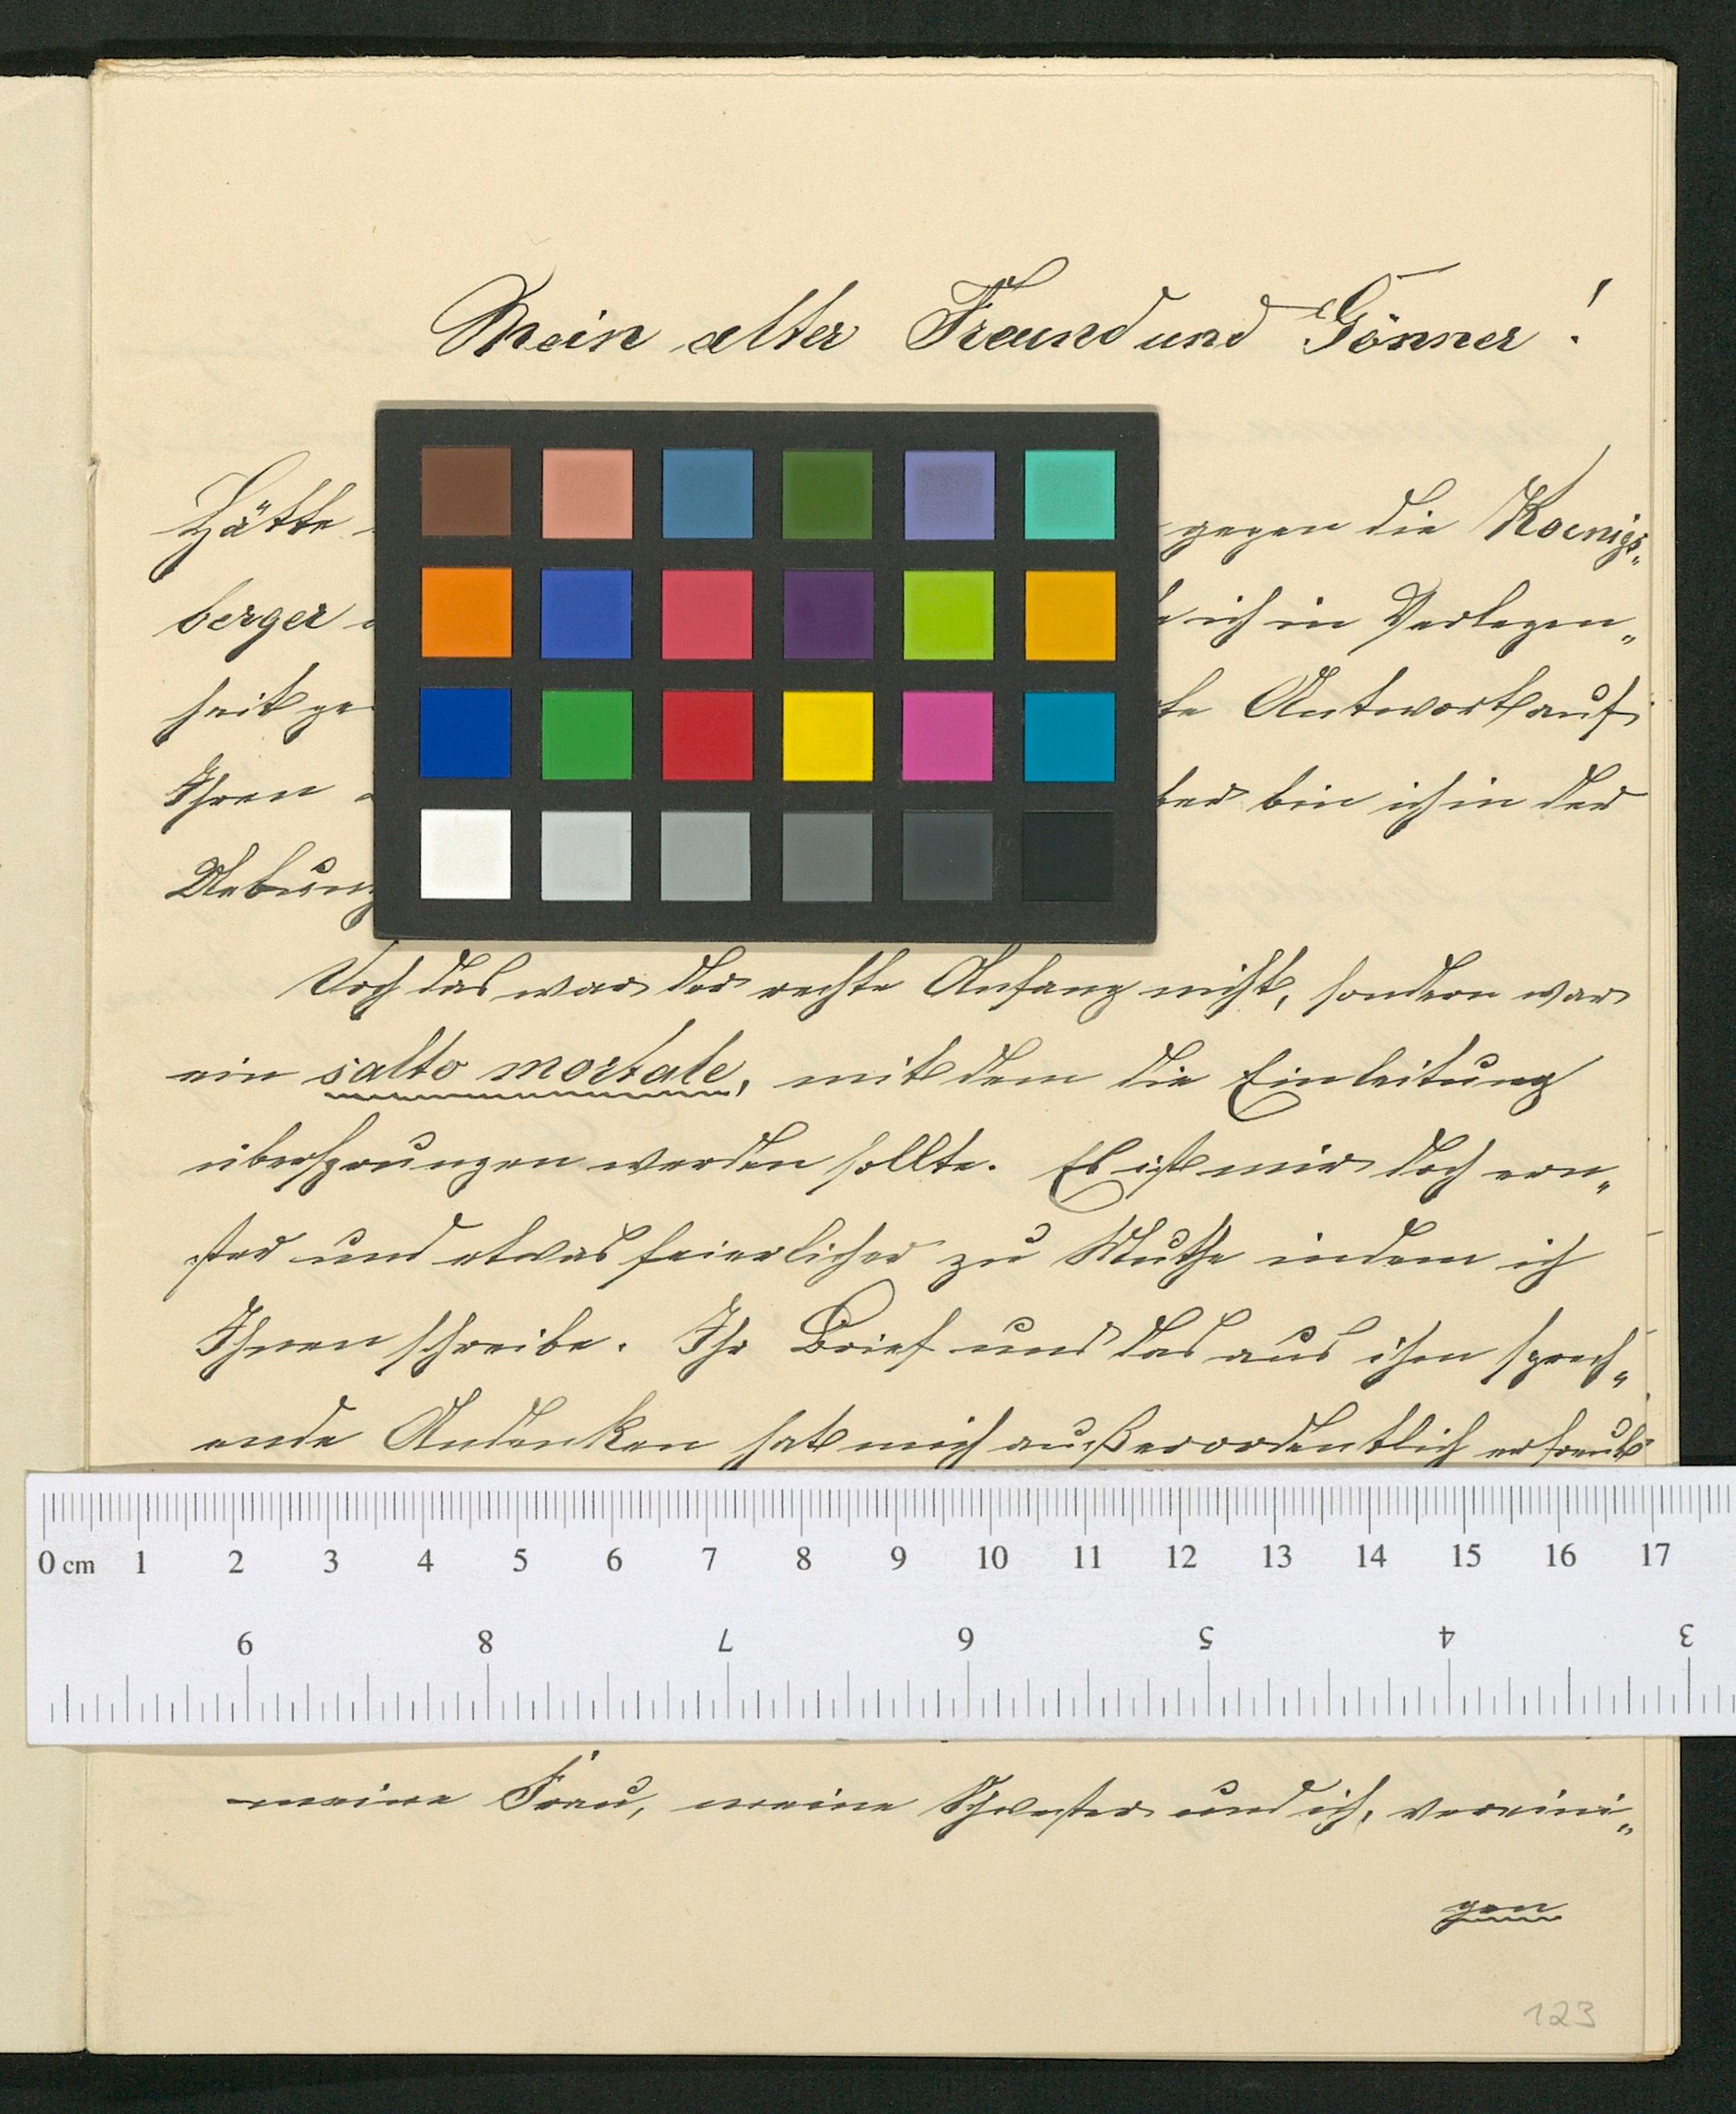 Mein alter Freund und Gönner!
Hätte gegen die Koenigs„
berger ich in Verlegen„
heit Antwort auf
Ihren bin ich in der
Uebung
Doch das war der rechte Anfang nicht, sondern war
ein salto mortale, mit dem die Einleitung
übersprungen werden sollte. Es ist mir doch ern„
ster und etwas feierlicher zu Muthe indem ich
Ihnen schreibe. Ihr Brief und das aus ihm sprech„
ende Andenken hat mich außerordentlich erfreut
0 cm 1 2 3 4 5 6 7 8 9 10 11 12 13 14 15 16 17
9 8 7 6 5 4 3
meine Frau, meine Schwester und ich, vereini„
gen
123